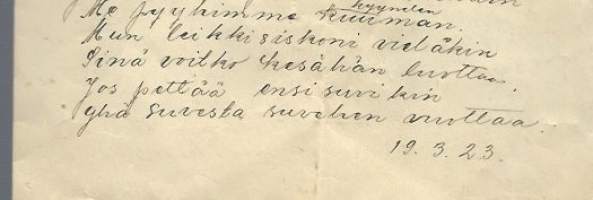 Me pyyhimme kyynelen kuuman.
Mun leikkisiskoni vieläkin
Sinä voitko kesähän luottaa.
Jos pettää ensi suvikin
yhä suvesta suvehen vuottaa.
19.3.23.